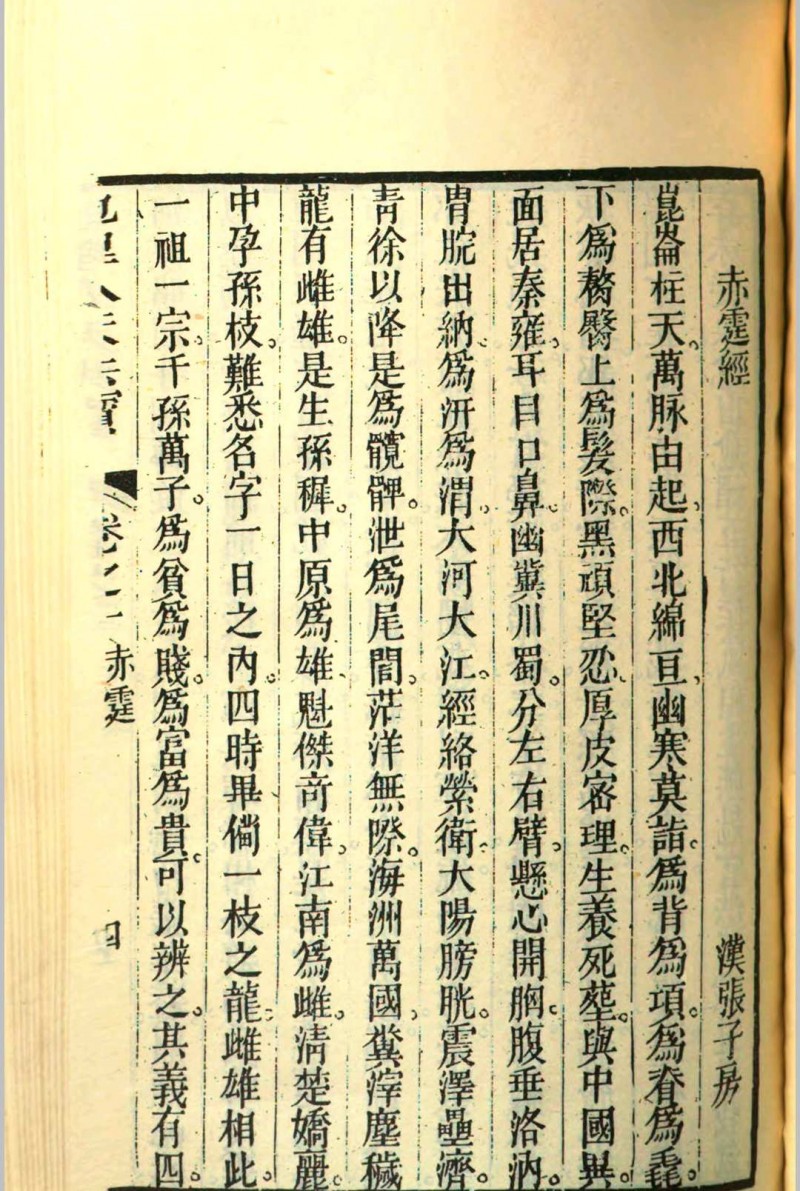 赤霆經 漢張子房
崑崙柱天。萬脉由起。西北綿亘。幽寒莫詣。爲背爲項。爲脊爲毳。
下爲臀上爲髮際。黑頑堅忍。厚皮密理。生養死塟。與中國異。
面居秦雍。耳目口鼻。幽冀川蜀。分左右臂。懸心開胸。腹垂洛汭。
胃脘出納。爲汧爲渭。大河大江。經絡縈衛。大陽膀胱。震澤壘濟。
靑徐以降。是爲髖髀。泄爲尾閭。茫洋無際。海洲萬國。糞滓塵穢
龍有雌雄。是生孫穉。中原爲雄。魁傑奇偉。江南爲雌。清楚嬌麗。
中孕孫枝。難悉名字。一日之內。四時畢備。一枝之龍。雌雄相此。
一祖一宗。千孫萬子。爲貧爲賤。爲富爲貴。可以辨之。其義有四。
卷之一 赤霆
四